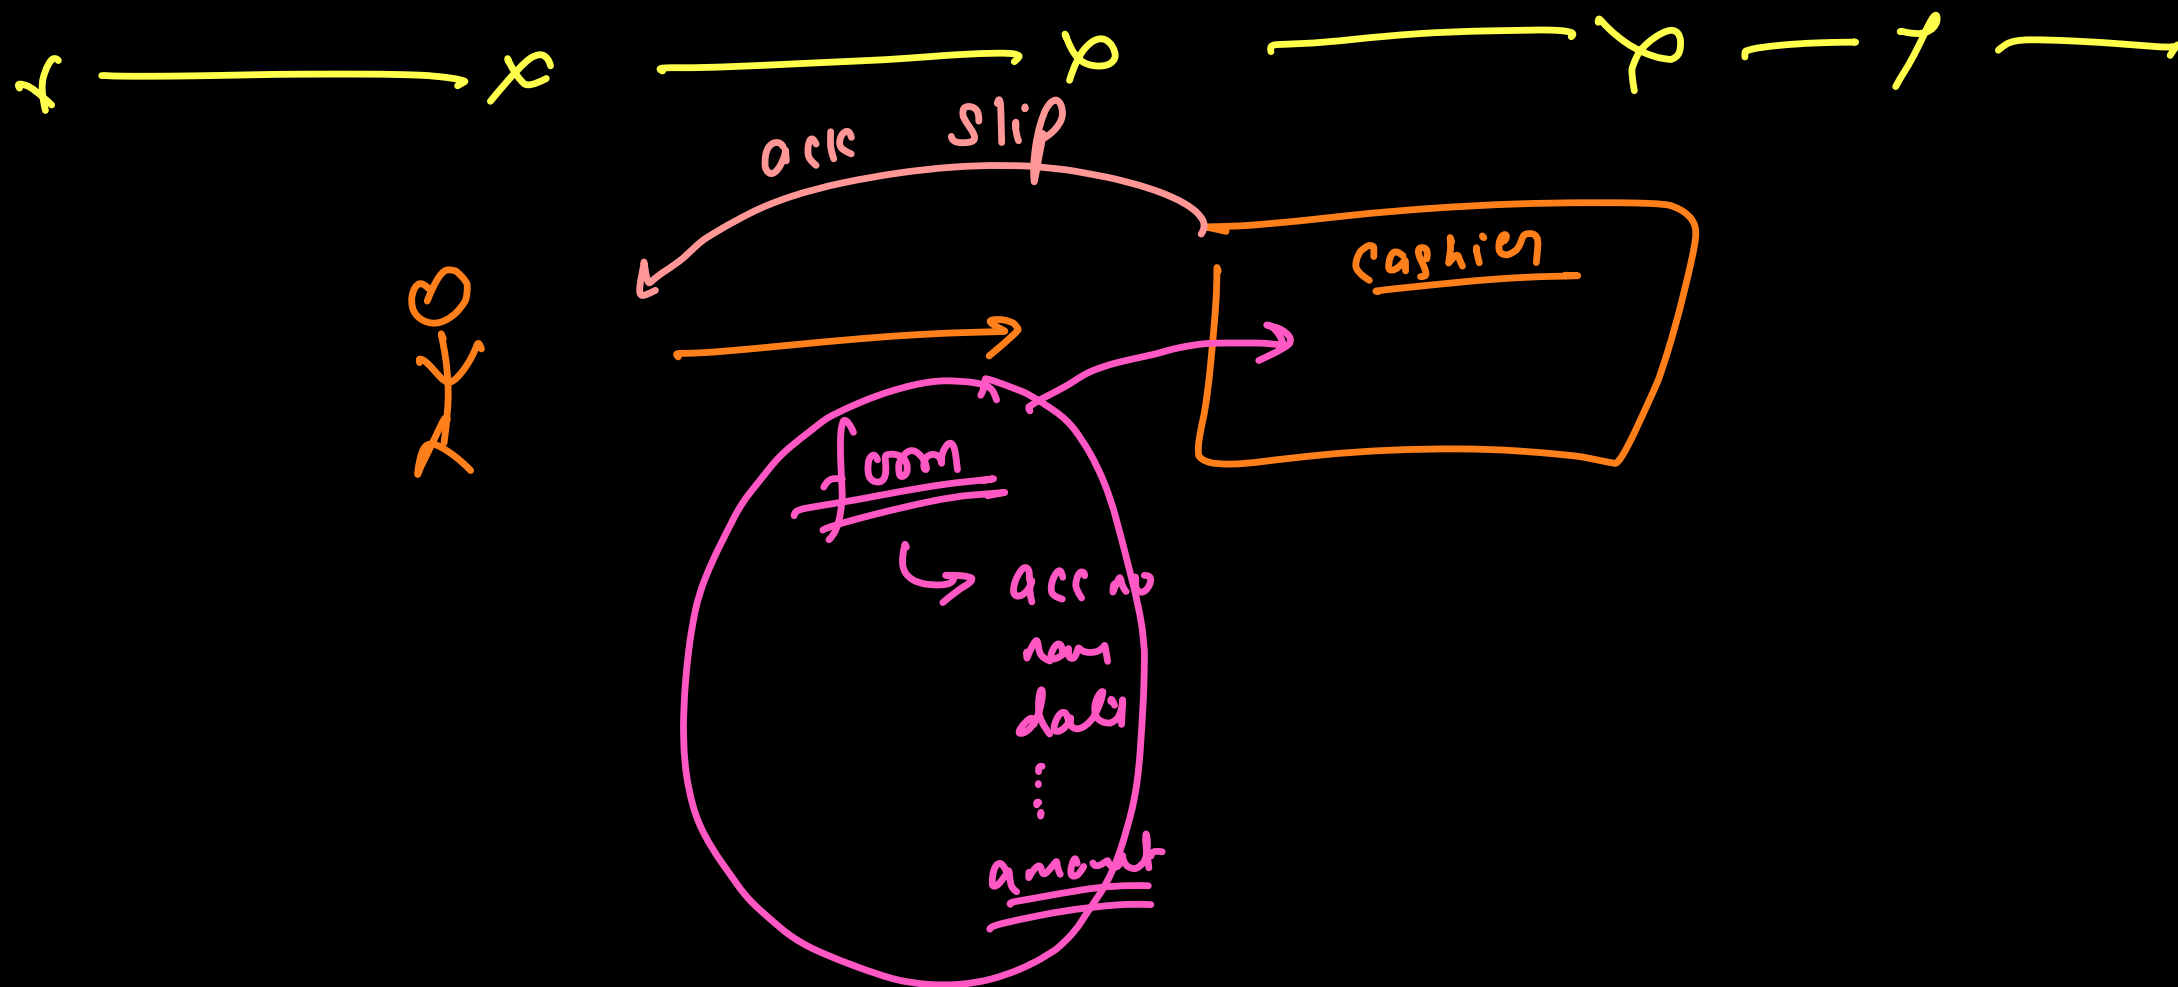 ack slip
cashier
form
acc no
nam
date
amount